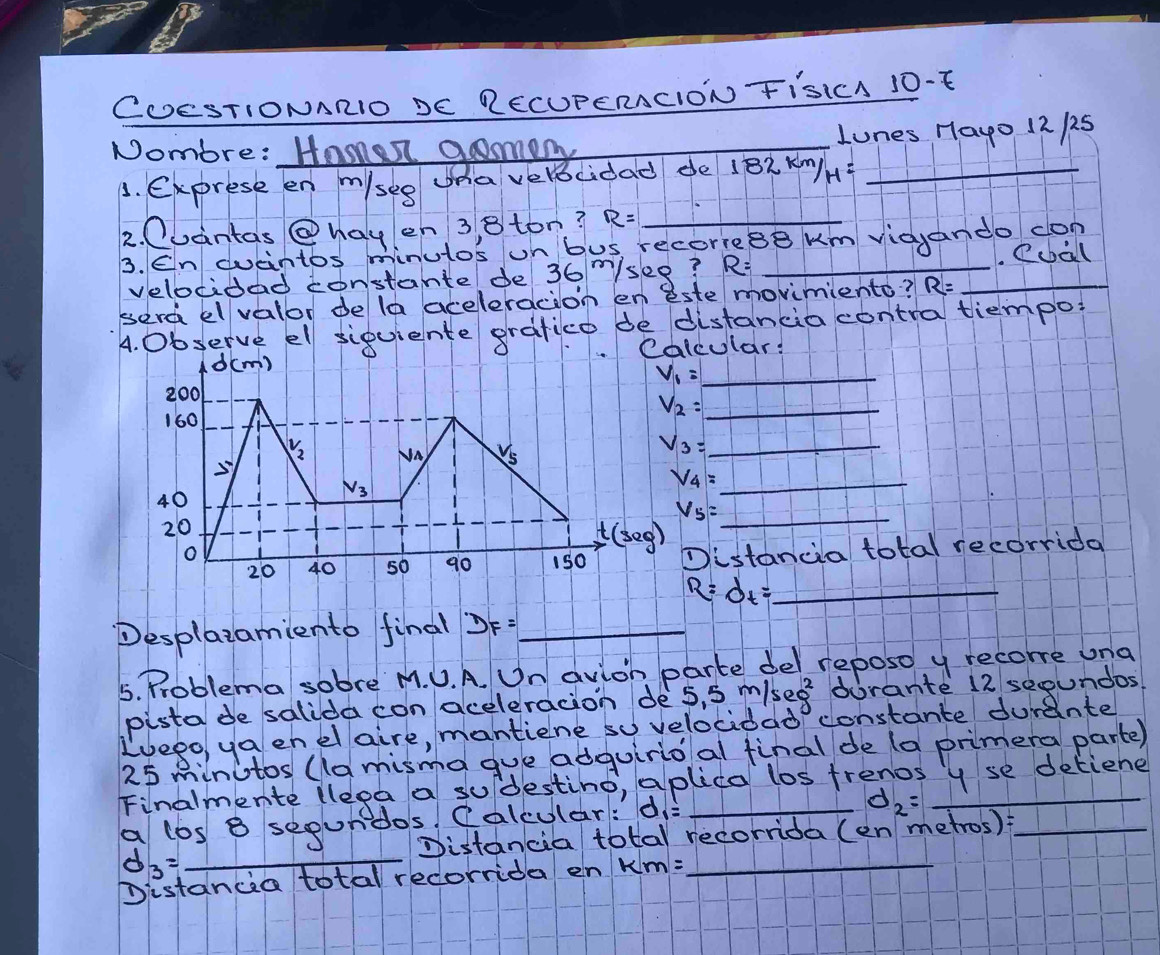 CUESTIONARIO DE RECUPERACIÓN FÍSICA 10-E
Nombre: Homer gomez Lunes Mayo 12/25
1. Exprese en m/seg una velocidad de 182 Km/H=
2. Cuántas @ hay en 3,8 ton? R=
3. En cuántos minutos un bus recorre 88 Km viajando con
velocidad constante de 36 m/seg? R= . Cuál
será el valor de la aceleración en este movimiento? R=
4. Observe el siguiente gráfico de distancia contra tiempo:
Calcular:
d(m)
200
160
40
20
0
V1
V2
V3
V4
V5
20 40 50 90 150
t(seg)
V1=
V2=
V3=
V4=
V5=
Distancia total recorrida
R= dt=
Desplazamiento final DF=
5. Problema sobre M.U.A. Un avión parte del reposo y recorre una
pista de salida con aceleración de 5,5 m/seg² durante 12 segundos.
Luego, ya en el aire, mantiene su velocidad constante durante
25 minutos (la misma que adquirió al final de la primera parte)
Finalmente llega a su destino, aplica los frenos y se detiene
a los 8 segundos. Calcular: d1= d2=
d3= Distancia total recorrida (en metros)=
Distancia total recorrida en Km=